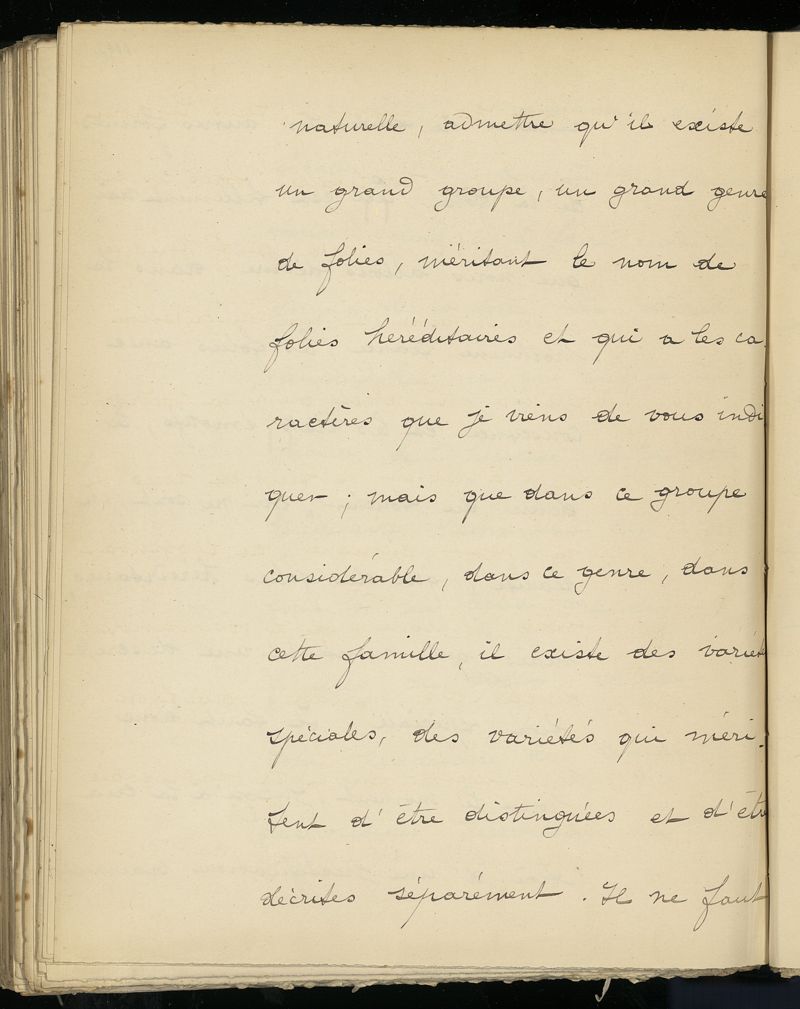 naturelle, admettre qu'il existe
un grand groupe, un grand genre
de folies, méritant le nom de
folies héréditaires et qui a les ca-
ractères que je viens de vous indi
quer ; mais que dans ce groupe
considérable, dans ce genre, dans
cette famille, il existe des variét
spéciales, des variétés qui méri-
tent d'être distinguées et d'êtr
décrites séparément. Il ne faut